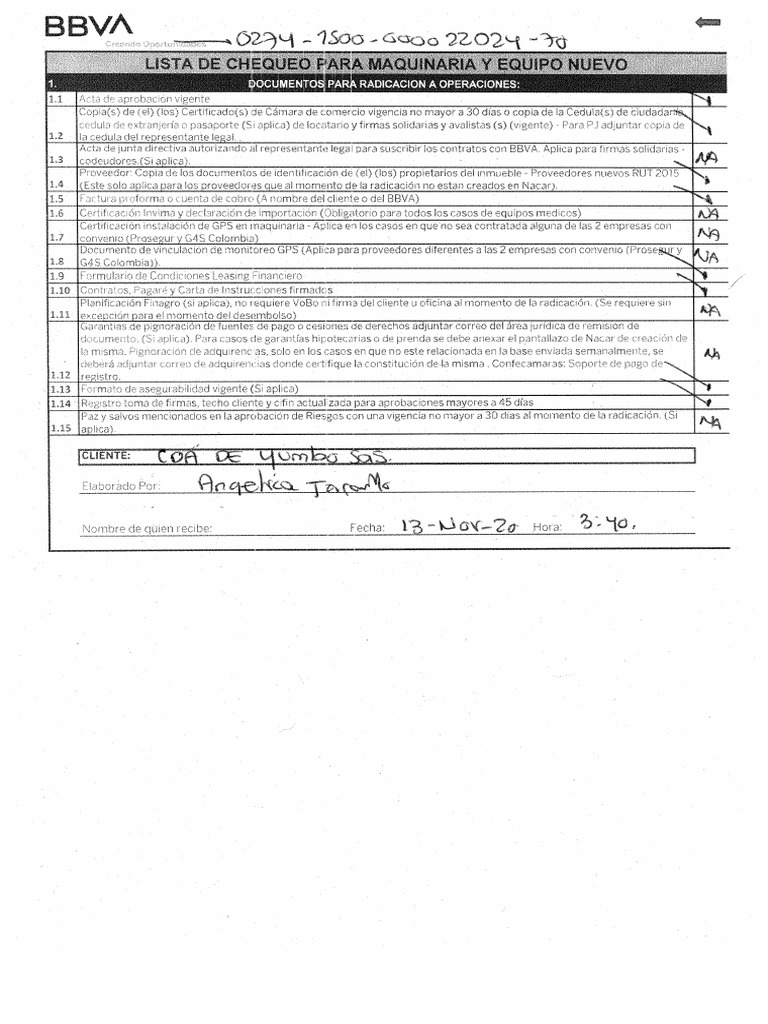 BBVA
Creando Oportunidades
0274-1500-0000 22024-70
LISTA DE CHEQUEO PARA MAQUINARIA Y EQUIPO NUEVO
1. DOCUMENTOS PARA RADICACION A OPERACIONES:
1.1 Acta de aprobacion vigente
Copia(s) de (el) (los) Certificado(s) de Cámara de comercio vigencia no mayor a 30 días o copia de la Cedula(s) de ciudadanía,
cedula de extranjería o pasaporte (Si aplica) de locatario y firmas solidarias y avalistas (s) (vigente) - Para PJ adjuntar copia de
1.2 la cedula del representante legal.
Acta de junta directiva autorizando al representante legal para suscribir los contratos con BBVA. Aplica para firmas solidarias -
1.3 codeudores.(Si aplica). NA
Proveedor: Copia de los documentos de identificación de (el) (los) propietarios del inmueble - Proveedores nuevos RUT 2015
1.4 (Este solo aplica para los proveedores que al momento de la radicación no estan creados en Nacar).
1.5 Factura proforma o cuenta de cobro (A nombre del cliente o del BBVA)
1.6 Certificación Invima y declaración de importación (Obligatorio para todos los casos de equipos medicos) NA
Certificación instalación de GPS en maquinaria - Aplica en los casos en que no sea contratada alguna de las 2 empresas con
1.7 convenio (Prosegur y G4S Colombia) NA
Documento de vinculación de monitoreo GPS (Aplica para proveedores diferentes a las 2 empresas con convenio (Prosegur y
1.8 G4S Colombia)). NA
1.9 Formulario de Condiciones Leasing Financiero
1.10 Contratos, Pagaré y Carta de Instrucciones firmados
Planificación Finagro (si aplica), no requiere VoBo ni firma del cliente u oficina al momento de la radicación. (Se requiere sin
1.11 excepción para el momento del desembolso) NA
Garantias de pignoración de fuentes de pago o cesiones de derechos adjuntar correo del área jurídica de remisión de
documento. (Si aplica). Para casos de garantías hipotecarias o de prenda se debe anexar el pantallazo de Nacar de creación de
la misma. Pignoración de adquirencias, solo en los casos en que no este relacionada en la base enviada semanalmente, se NA
deberá adjuntar correo de adquirencias donde certifique la constitución de la misma . Confecamaras: Soporte de pago de
1.12 registro.
1.13 Formato de asegurabilidad vigente (Si aplica)
1.14 Registro toma de firmas, techo cliente y cifin actualizada para aprobaciones mayores a 45 días
Paz y salvos mencionados en la aprobación de Riesgos con una vigencia no mayor a 30 dias al momento de la radicación. (Si
1.15 aplica). NA
CLIENTE: CDA DE Yumbo SaS.
Elaborado Por: Angelica Jaramillo
Nombre de quien recibe: Fecha: 13-Nov-20 Hora: 3:40.